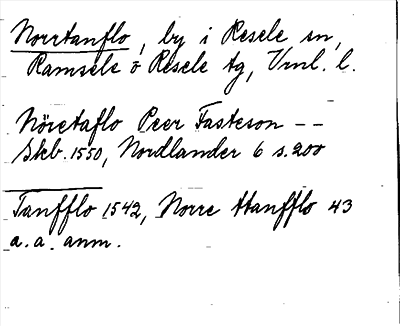 Norrtanflo, by i Resele sn,
Ramsele o Resele tg, Vrnl. l.
Nöretaflo Peer Fasteson --
Skb. 1550, Nordlander 6 s. 200
Tanfflo 1542, Norre Hanfflo 43
a. a. anm.